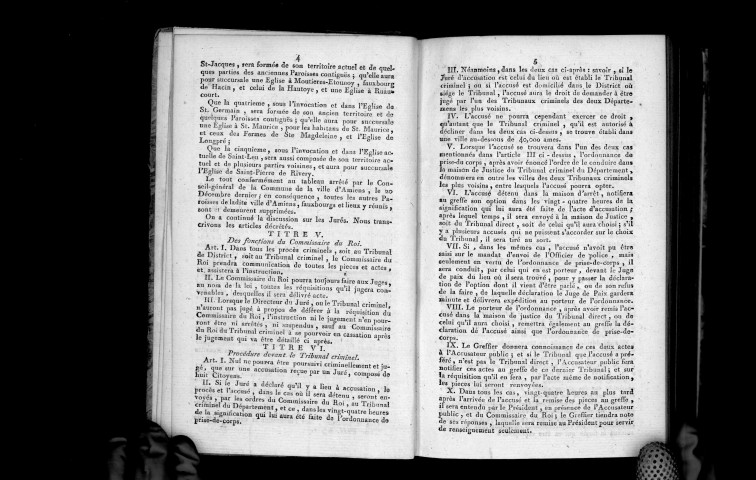 4
St-Jacques, sera formée de son territoire actuel et de quel-
ques parties des anciennes Paroisses contiguës; qu'elle aura
pour succursale une Eglise à Moutieres-Etouvoy, fauxbourg
de Hacin, et celui de la Hautoye, et une Eglise à Renan-
court.
Que la quatrieme, sous l'invocation et dans l'Eglise de
St. Germain, sera formée de son ancien territoire et de
quelques Paroisses contiguës; qu'elle aura pour succursale
une Eglise à St. Maurice, pour les habitans de St. Maurice,
et ceux des Fermes de Ste Magdeleine, et l'Eglise de
Longpré;
Que la cinquieme, sous l'invocation et dans l'Eglise ac-
tuelle de Saint-Leu, sera aussi composée de son territoire ac-
tuel et de plusieurs parties voisines, et aura pour succursale
l'Eglise de Saint-Pierre de Rivery.
Le tout conformément au tableau arrêté par le Con-
seil-général de la Commune de la ville d'Amiens, le 20
Décembre dernier; en conséquence, toutes les autres Pa-
roisses de ladite ville d'Amiens, fauxbourgs et lieux y réunis,
sont et demeurent supprimées.
On a continué la discussion sur les Jurés. Nous trans-
crivons les articles décrétés.
TITRE V.
Des fonctions du Commissaire du Roi.
Art. I. Dans tous les procès criminels, soit au Tribunal
de District, soit au Tribunal criminel, le Commissaire du
Roi prendra communication de toutes les pieces et actes,
et assistera à l'instruction.
II. Le Commissaire du Roi pourra toujours faire aux Juges,
au nom de la loi, toutes les réquisitions qu'il jugera con-
venables, desquelles il sera délivré acte.
III. Lorsque le Directeur du Juré, ou le Tribunal criminel,
n'auront pas jugé à propos de déférer à la réquisition du
Commissaire du Roi, l'instruction ni le jugement n'en pour-
ront être ni arrêtés, ni suspendus, sauf au Commissaire
du Roi du Tribunal criminel à se pourvoir en cassation après
le jugement qui va être détaillé ci après.
TITRE VI.
Procédure devant le Tribunal criminel.
Art. I. Nul ne pourra être poursuivi criminellement et ju-
gé, que sur une accusation reçue par un Juré, composé de
huit Citoyens.
II. Si le Juré a déclaré qu'il y a lieu à accusation, le
procès et l'accusé, dans le cas où il sera détenu, seront en-
voyés, par les ordres du Commissaire du Roi, au Tribunal
criminel du Département, et ce, dans les vingt-quatre heures
de la signification qui lui aura été faite de l'ordonnance de
prise-de-corps.
5
III. Néanmoins, dans les deux cas ci-après: savoir, si le
Juré d'accusation est celui du lieu où est établi le Tribunal
criminel; ou si l'accusé est domicilié dans le District où
siége le Tribunal, l'accusé aura le droit de demander à être
jugé par l'un des Tribunaux criminels des deux Départe-
mens les plus voisins.
IV. L'accusé ne pourra cependant exercer ce droit,
qu'autant que le Tribunal criminel, qu'il est autorisé à
décliner dans les deux cas ci-dessus, se trouve établi dans
une ville au-dessous de 40,000 ames.
V. Lorsque l'accusé se trouvera dans l'un des deux cas
mentionnés dans l'article III ci-dessus, l'ordonnance de
prise-de corps, après avoir énoncé l'ordre de le conduire dans
la maison de Justice du Tribunal criminel du Département,
dénommera en outre les villes des deux Tribunaux criminels
les plus voisins, entre lesquels l'accusé pourra opter.
VI. L'accusé détenu dans la maison d'arrêt, notifiera
au greffe son option dans les vingt-quatre heures de la
signification qui lui aura été faite de l'acte d'accusation;
après lequel temps, il sera envoyé à la maison de Justice,
soit du Tribunal direct, soit de celui qu'il aura choisi; s'il
y a plusieurs accusés qui ne puissent s'accorder sur le choix
du Tribunal, il sera tiré au sort.
VII. Si, dans les mêmes cas, l'accusé n'avoit pu être
saisi sur le mandat d'envoi de l'Officier de police, mais
seulement en vertu de l'ordonnance de prise-de-corps, il
sera conduit, par celui qui en est porteur, devant le Juge
de paix du lieu où il sera trouvé, pour y passer la déclara-
tion de l'option dont il vient d'être parlé, ou de son refus
de la faire, de laquelle déclaration le Juge de Paix gardera
minute et délivrera expédition au porteur de l'ordonnance.
VIII. Le porteur de l'ordonnance, après avoir remis l'ac-
cusé dans la maison de justice du Tribunal direct, ou de
celui qu'il aura choisi, remettra également au greffe la dé-
claration de l'accusé ainsi que l'ordonnance de prise-de-
corps.
IX. Le Greffier donnera connoissance de ces deux actes
à l'Accusateur public; et si le Tribunal que l'Accusé a pré-
féré, n'est pas le Tribunal direct, l'Accusateur public fera
notifier ces actes au greffe de ce dernier Tribunal; et sur
la réquisition qu'il en fera, par l'acte même de notification,
les pieces lui seront renvoyées.
X. Dans tous les cas, vingt-quatre heures au plus tard
après l'arrivée de l'accusé et la remise des pieces au greffe,
il sera entendu par le Président, en présence de l'Accusateur
public, et du Commissaire du Roi; le Greffier tiendra note
de ses réponses, laquelle sera remise au Président pour servir
de renseignement seulement.